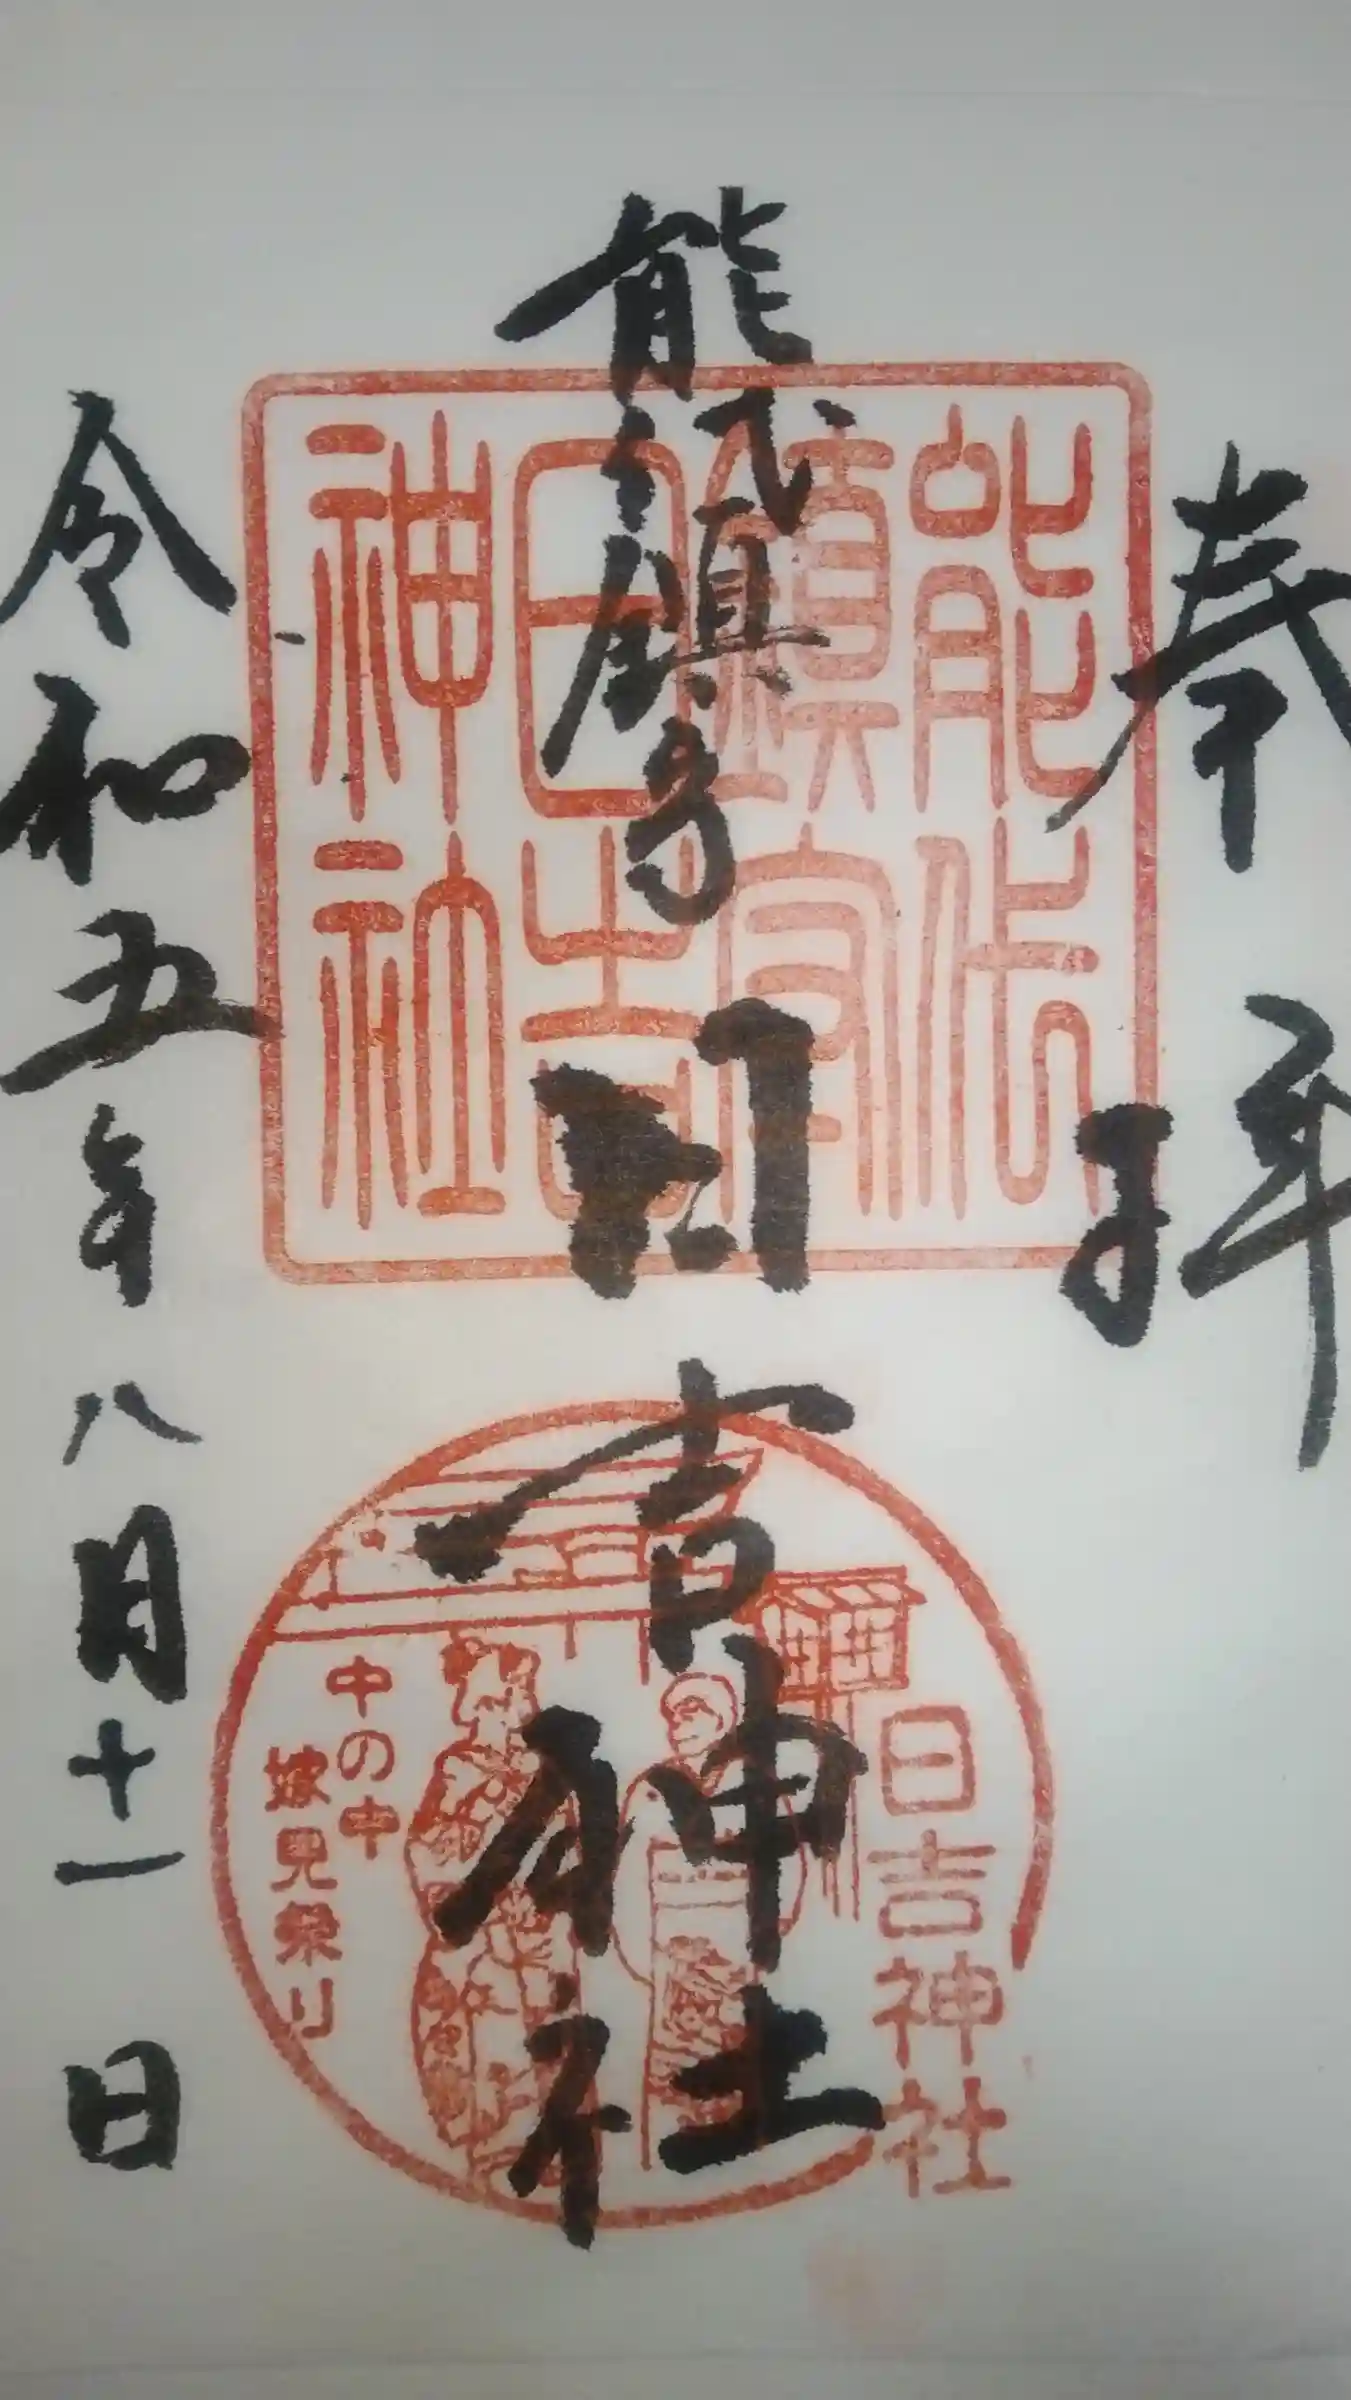 奉拝
能代鎮守
日吉神社
令和五年八月十一日
能代
鎮守
日吉
神社
日吉神社
中の申
嫁見祭り